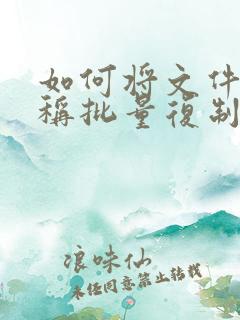 如何将文件
稱批量復制
浪味仙
未经同意禁止转载